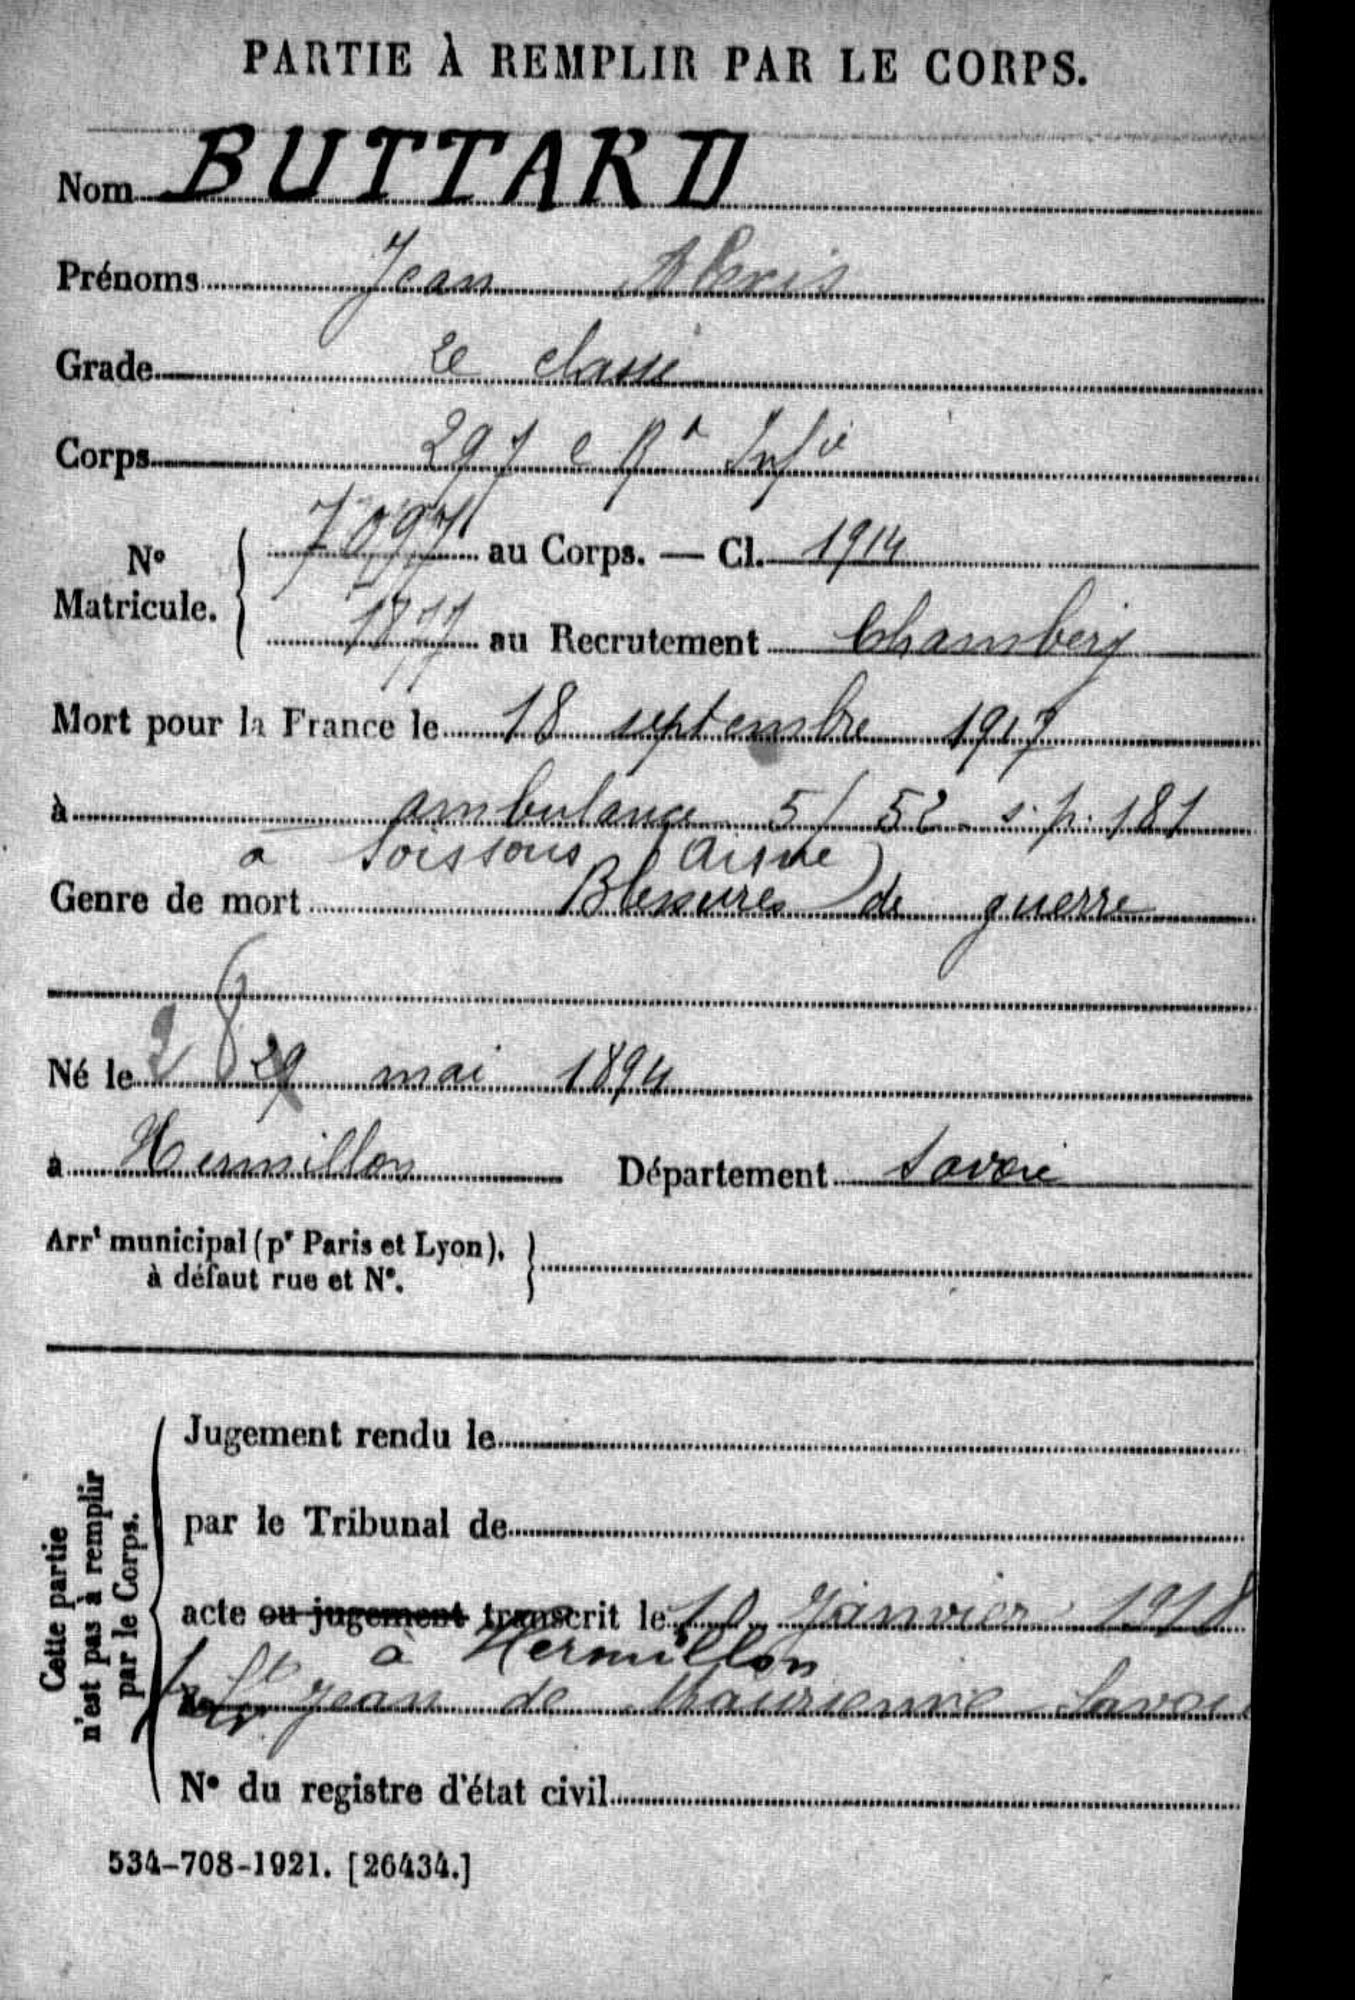 PARTIE À REMPLIR PAR LE CORPS.
Nom BUTTARD
Prénoms Jean Alexis
Grade 2e classe
Corps 297 e Rt Infie
No Matricule. { 7097 au Corps. — Cl. 1914
au Recrutement Chambery
Mort pour la France le 18 septembre 1917
à ambulance 5/52 s.p. 181
a Soissons (Aisne)
Genre de mort Blessures de guerre
Né le 28 29 mai 1894
à Hermillon Département Savoie
Arrt municipal (pr Paris et Lyon), à défaut rue et No. }
Cette partie n'est pas à remplir par le Corps.
Jugement rendu le
par le Tribunal de
acte ou jugement transcrit le 10 Janvier 1918
à Hermillon
St Jean de Maurienne Savoie
No du registre d'état civil
534-708-1921. [26434.]